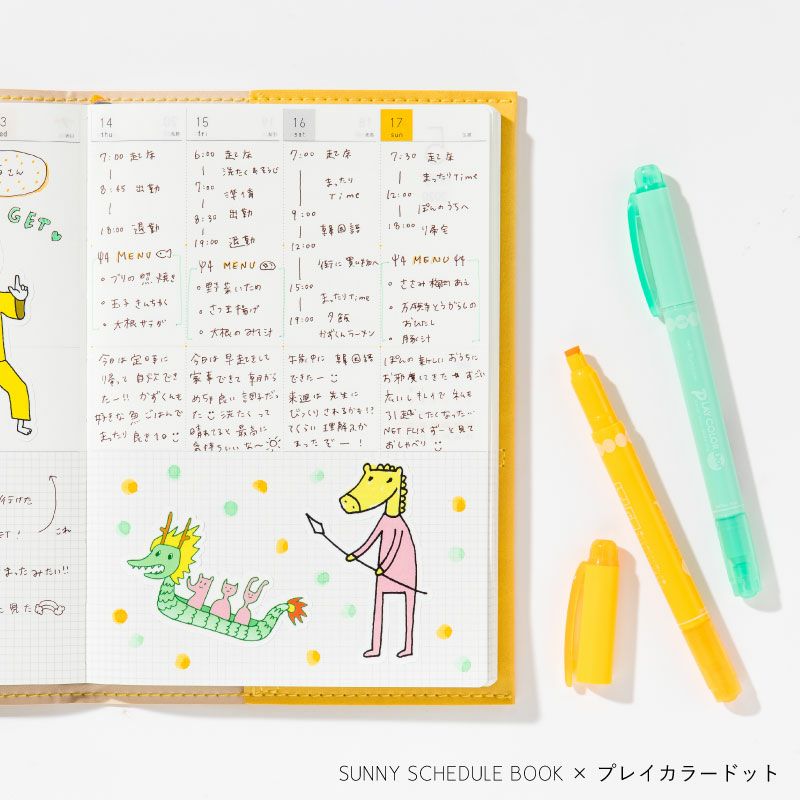 3
ed
さん
GET
行けた
ET!
これ
まったみたい!!
に見た
14
thu
7:00 起床
8:45 出勤
18:00 退勤
MENU
・ブリの照焼き
・玉子きんちゃく
・大根サラダ
今日は定時に
帰って自炊でき
たー!! かずくんも
好きな魚ごはんで
まったり良き日
15
fri
6:00 起床
洗たく&そうじ
7:00
準備
8:30 出勤
19:00 退勤
MENU
・野菜いため
・さつま揚げ
・大根のみそ汁
今日は早起きして
家事できて朝から
めちゃ良い調子だっ
た 洗たくって
晴れてると最高に
気持ちいいな〜
16
sat
7:00 起床
まったり
Time
9:00
韓国語
12:00
街に買い物へ
15:00
まったりTime
19:00 夕飯
かずくんラーメン
午前中に韓国語
できたー
来週は先生に
びっくりされるかも!?
てくらい理解深か
まったぞー!
17
sun
7:30 起床
まったりTime
12:00
ぽんのうちへ
18:00 帰宅
MENU
・ささみ梅肉あえ
・万願寺とうがらしの
おひたし
・豚汁
ぽんの新しいおうちに
お邪魔してきた すごい
広いしキレイで私も
引越したくなった…
NETFLIXずーと見て
おしゃべり
PLAY COLOR
SUNNY SCHEDULE BOOK × プレイカラードット